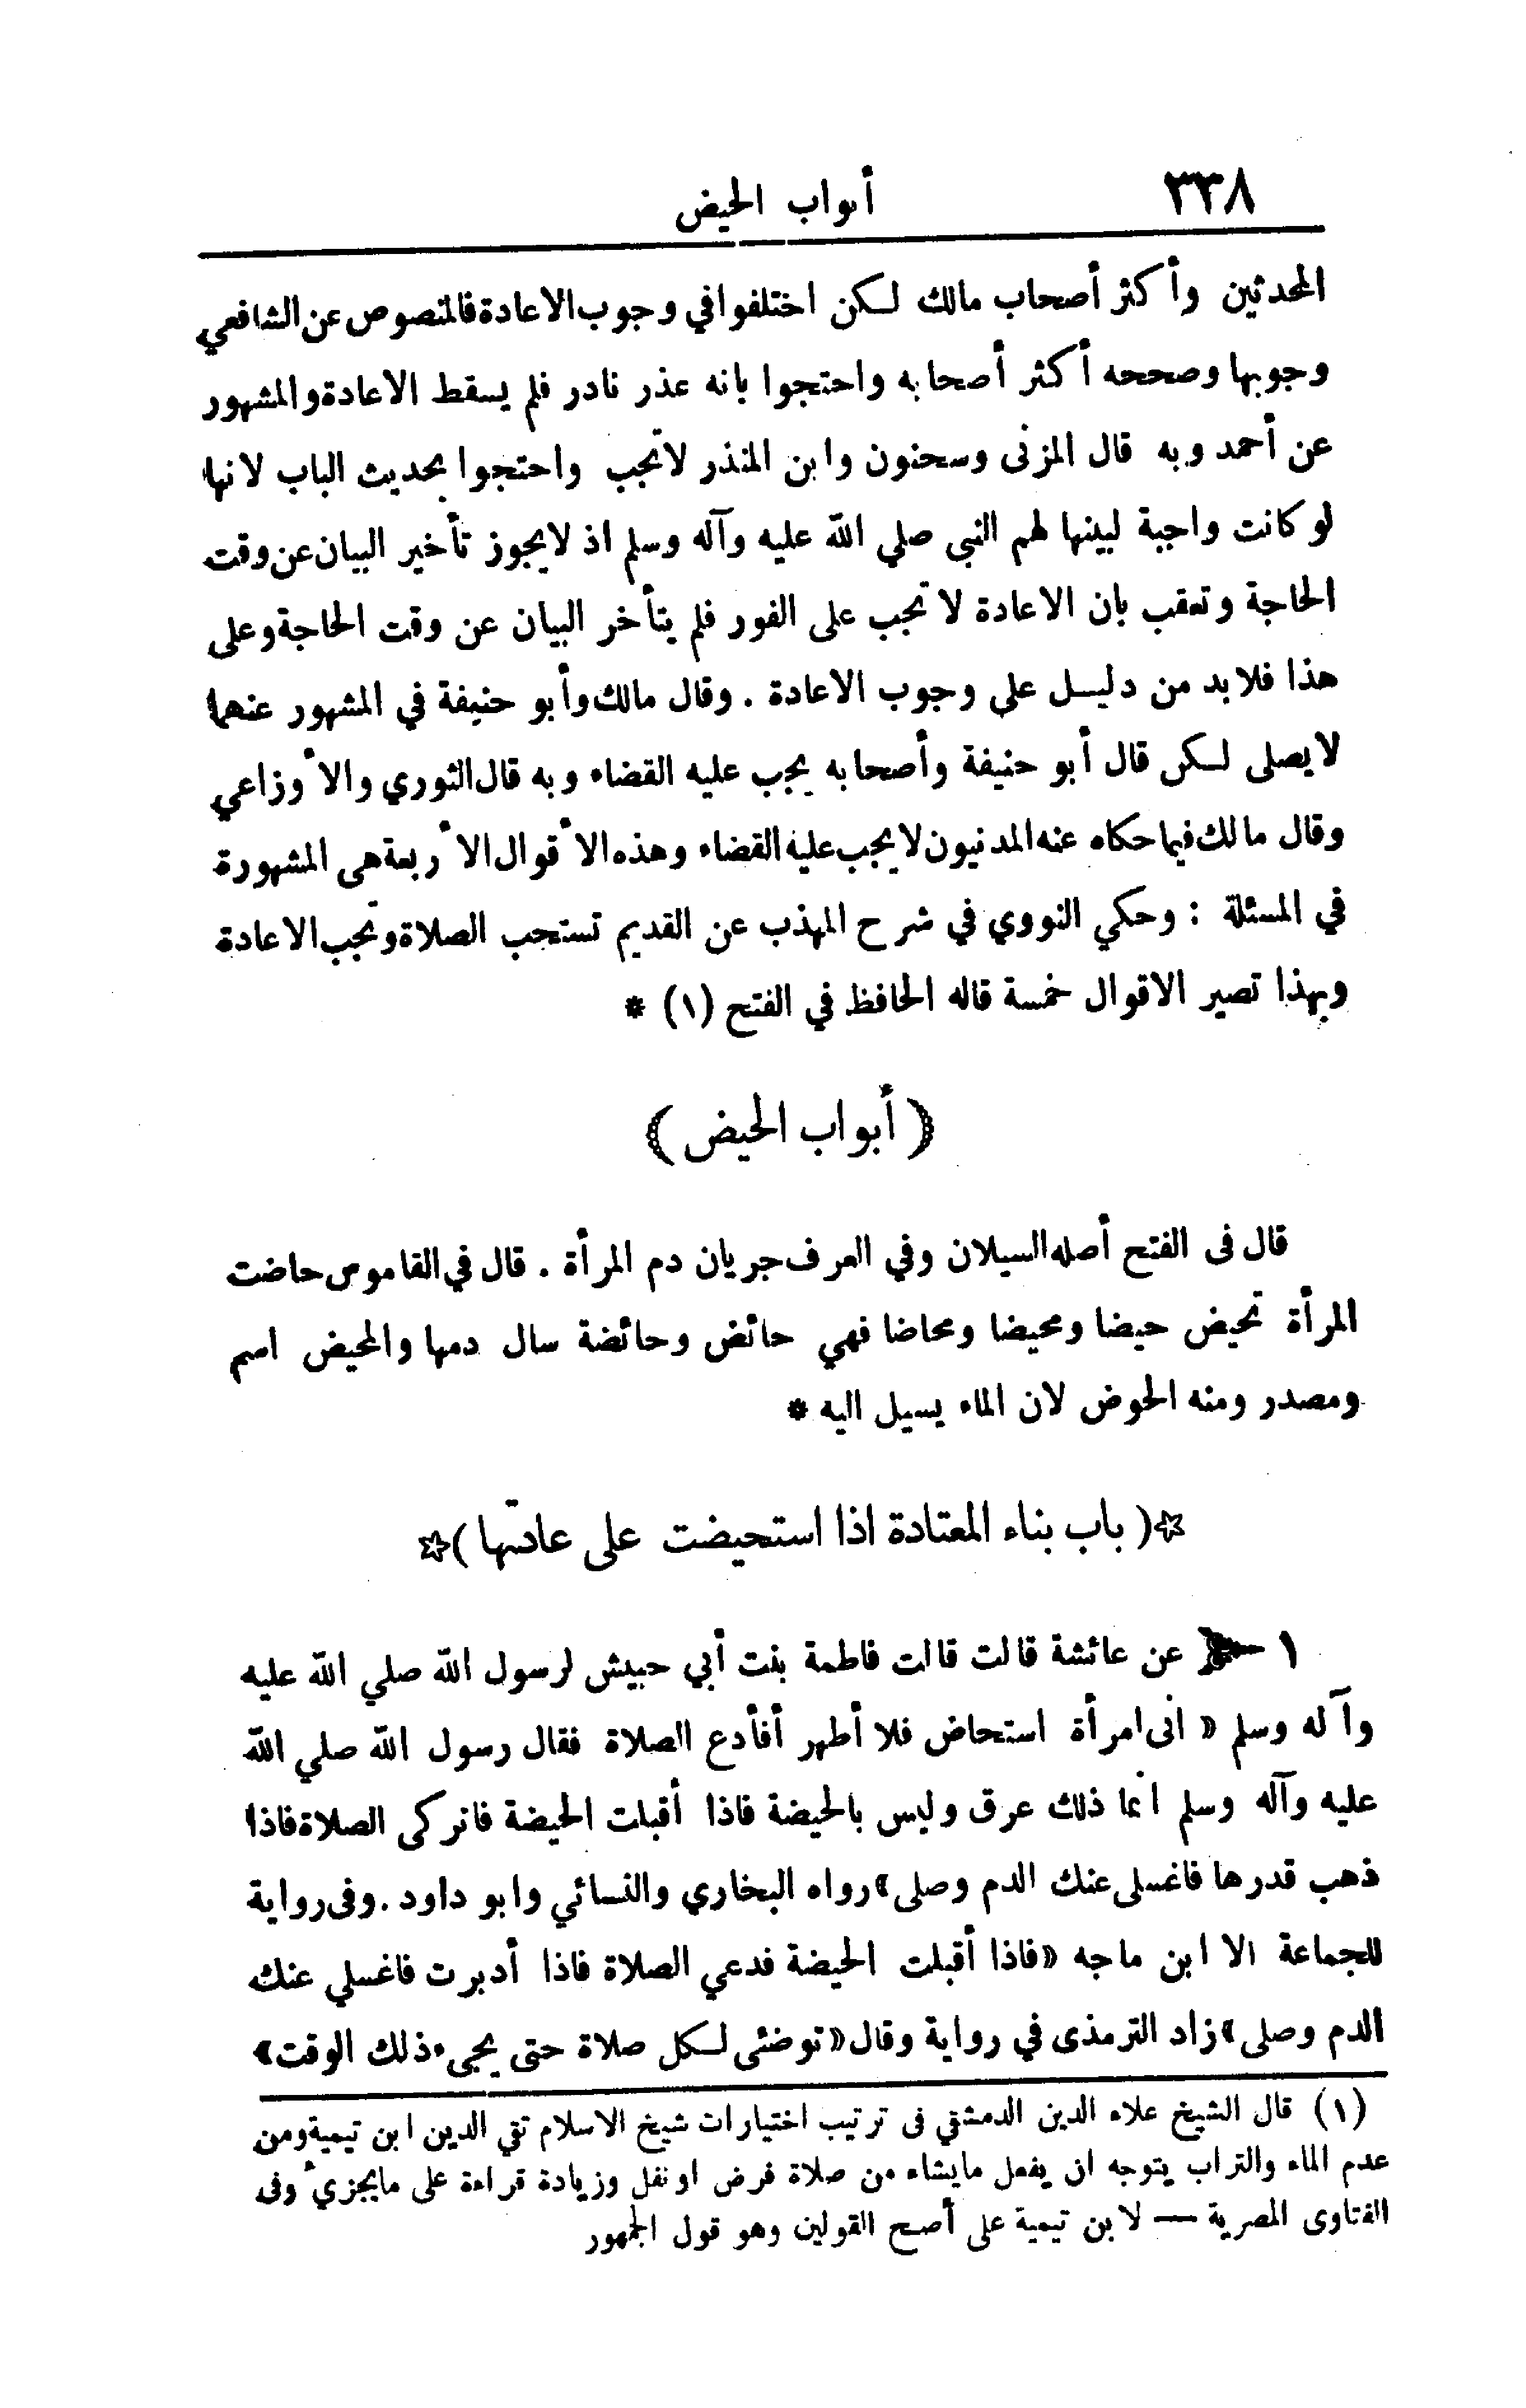 ٣٣٨ أبواب الحيض
المحدثين وأكثر أصحاب مالك لكن اختلفوا في وجوب الاعادة فالمنصوص عن الشافعي
وجوبها وصححه أكثر أصحابه واحتجوا بانه عذر نادر فلم يسقط الاعادة والمشهور
عن أحمد وبه قال المزنى وسحنون وابن المنذر لا تجب واحتجوا بحديث الباب لانها
لو كانت واجبة لبينها لهم النبي صلي الله عليه وآله وسلم اذ لا يجوز تأخير البيان عن وقت
الحاجة وتعقب بان الاعادة لا تجب على الفور فلم يتأخر البيان عن وقت الحاجة وعلى
هذا فلا بد من دليل علي وجوب الاعادة . وقال مالك وأبو حنيفة في المشهور عنهما
لا يصلى لكن قال أبو حنيفة وأصحابه يجب عليه القضاء وبه قال الثوري والأوزاعي
وقال مالك فيما حكاه عنه المدنيون لا يجب عليه القضاء وهذه الأقوال الأربعة هى المشهورة
في المسئلة : وحكي النووي في شرح المهذب عن القديم تستحب الصلاة وتجب الاعادة
وبهذا تصير الاقوال خمسة قاله الحافظ في الفتح (١) *
﴿ أبواب الحيض ﴾
قال فى الفتح أصله السيلان وفي العرف جريان دم المرأة . قال في القاموس حاضت
المرأة تحيض حيضا ومحيضا ومحاضا فهي حائض وحائضة سال دمها والمحيض اسم
ومصدر ومنه الحوض لان الماء يسيل اليه *
☆( باب بناء المعتادة اذا استحيضت على عادتها )☆
١ عن عائشة قالت قالت فاطمة بنت أبي حبيش لرسول الله صلي الله عليه
وآله وسلم « انى امرأة استحاض فلا أطهر أفأدع الصلاة فقال رسول الله صلي الله
عليه وآله وسلم انما ذلك عرق وليس بالحيضة فاذا أقبلت الحيضة فاتركى الصلاة فاذا
ذهب قدرها فاغسلى عنك الدم وصلى » رواه البخاري والنسائي وابو داود . وفى رواية
للجماعة الا ابن ماجه « فاذا أقبلت الحيضة فدعي الصلاة فاذا أدبرت فاغسلي عنك
الدم وصلى » زاد الترمذى في رواية وقال « توضئى لكل صلاة حتى يجىء ذلك الوقت »
(١) قال الشيخ علاء الدين الدمشقي فى ترتيب اختيارات شيخ الاسلام تقي الدين ابن تيمية ومن
عدم الماء والتراب يتوجه ان يفعل ما يشاء من صلاة فرض او نفل وزيادة قراءة على ما يجزئ وفى
الفتاوى المصرية — لابن تيمية على أصح القولين وهو قول الجمهور